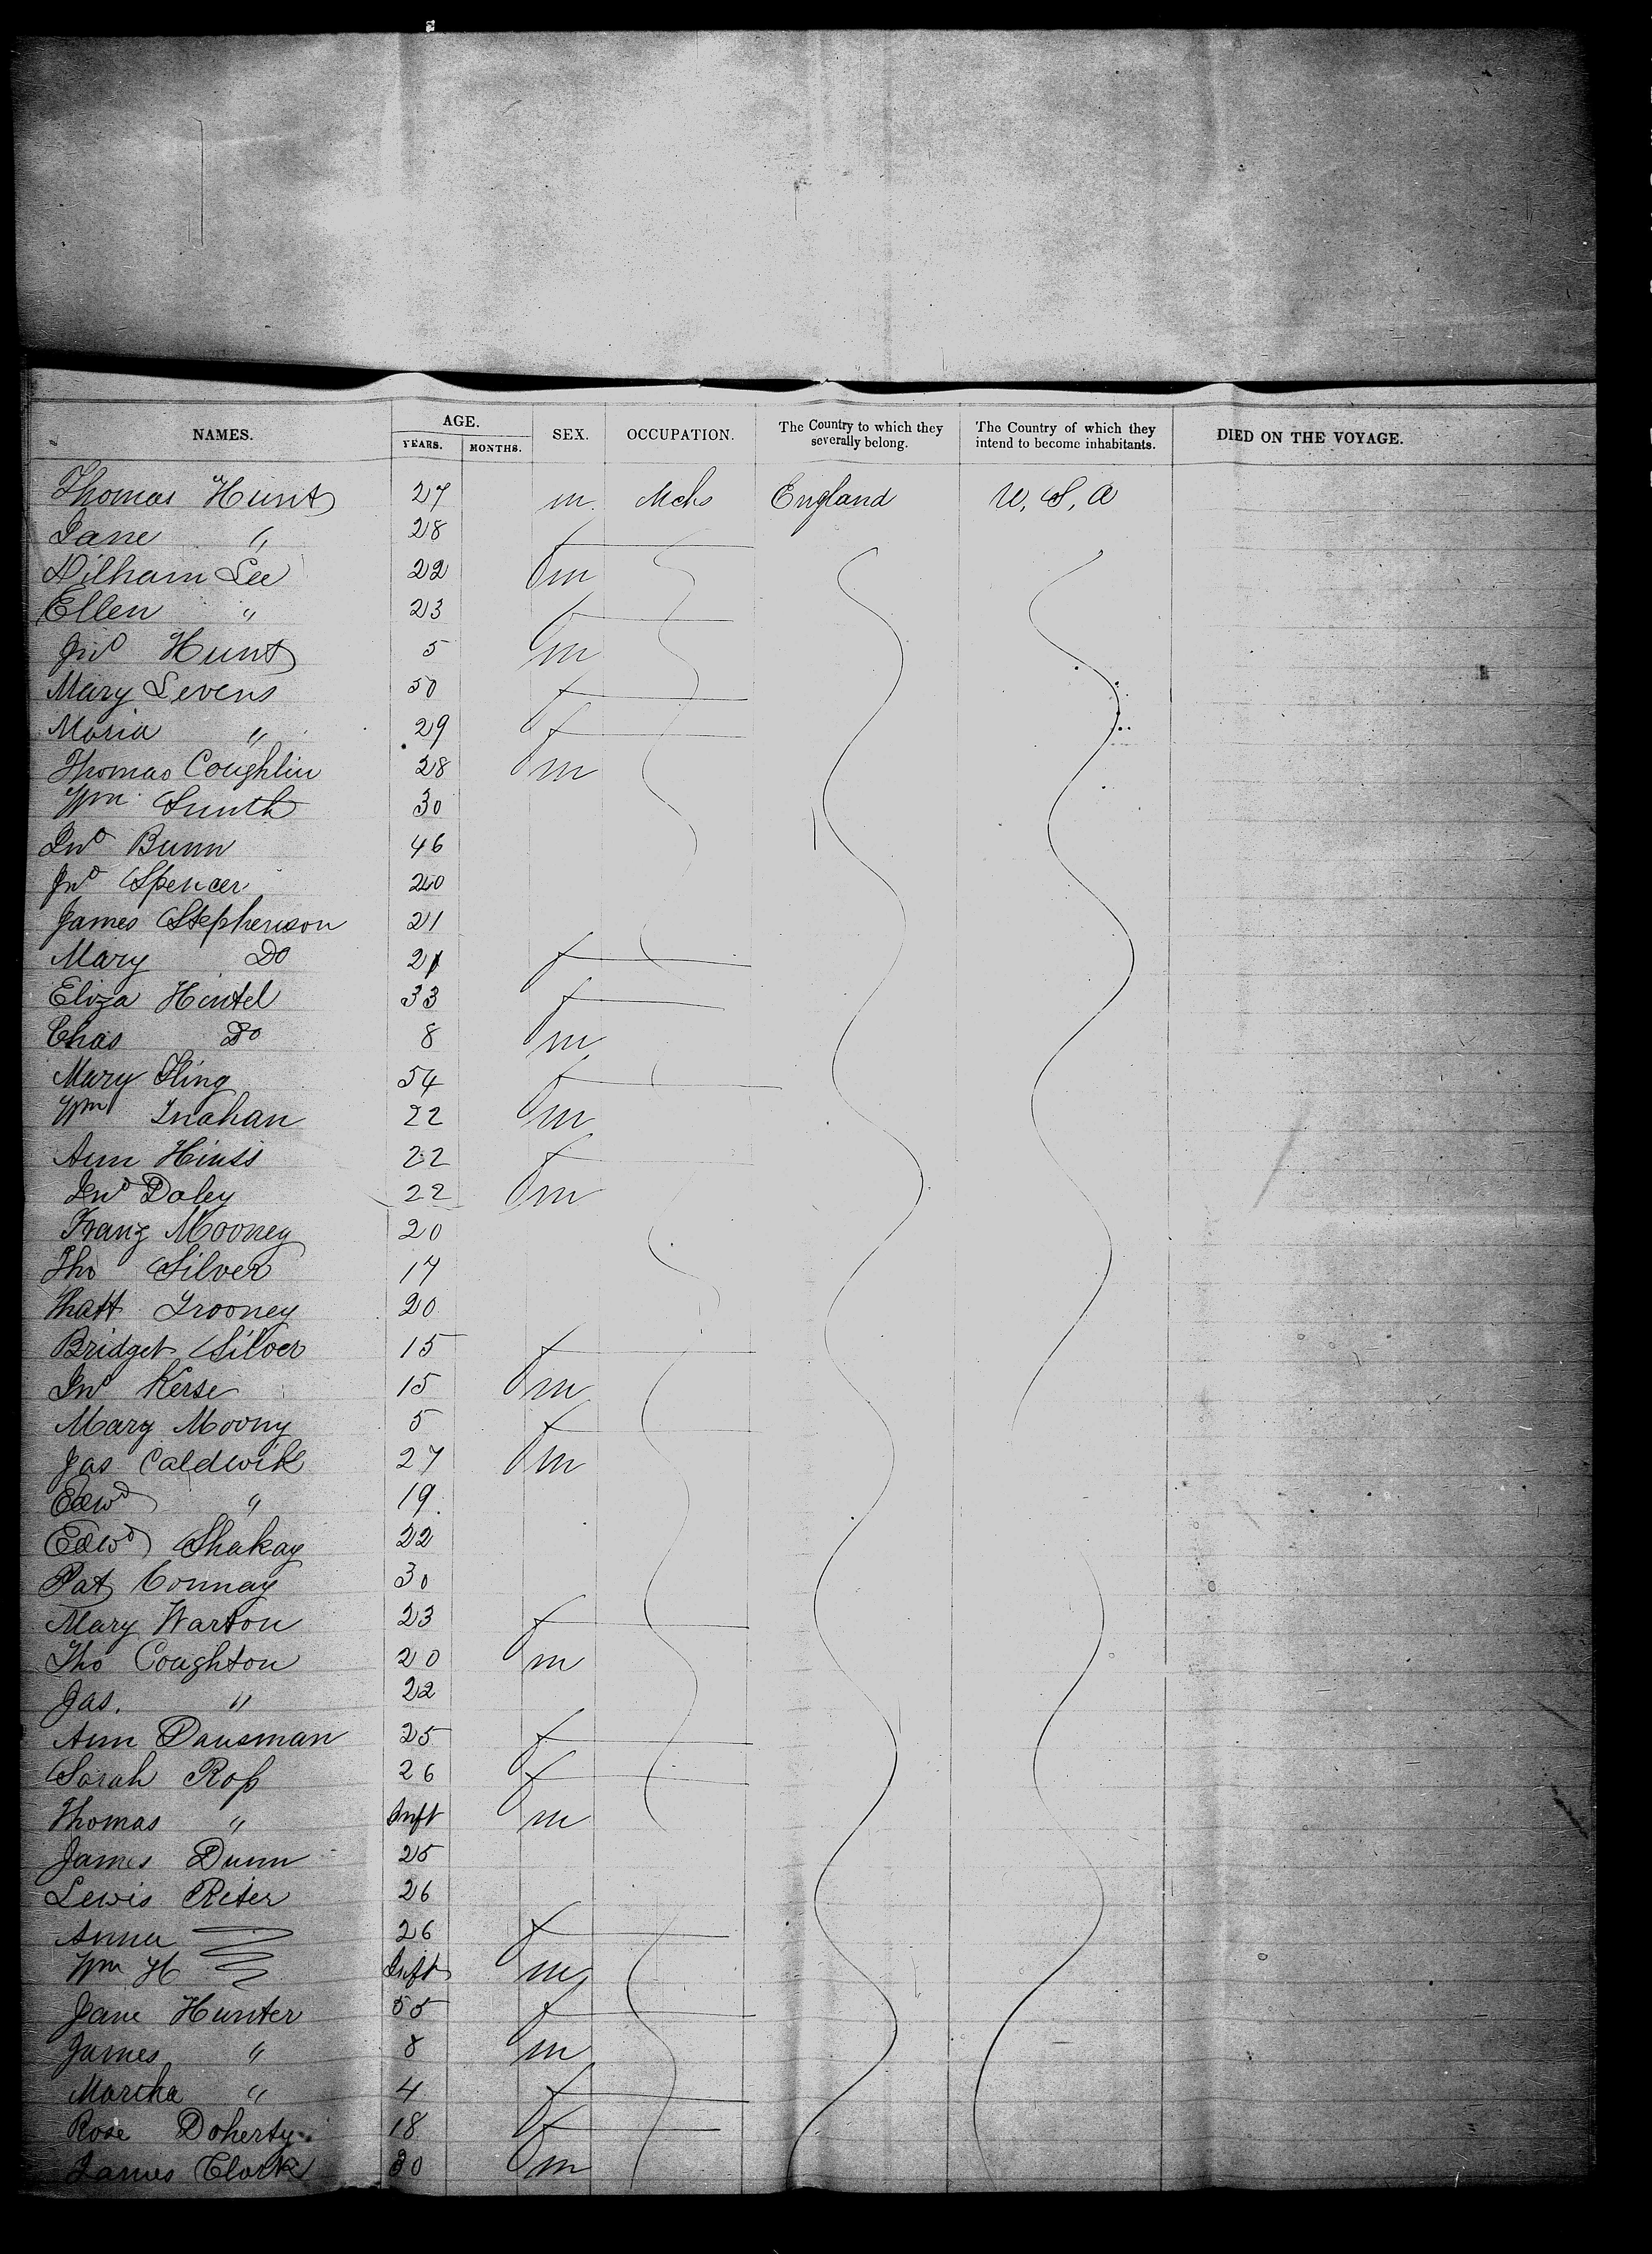 NAMES. AGE. SEX. OCCUPATION. The Country to which they severally belong. The Country of which they intend to become inhabitants. DIED ON THE VOYAGE.
YEARS. MONTHS.
Thomas Hunt 27 m. Mchs England U, S, A
Jane " 28 f
Wilham Lee 22 m
Ellen " 23 f
Jno Hunt 5 m
Mary Levens 50 f
Maria " 29 f
Thomas Coughlin 28 m
Wm Smith 30
Jno Bunn 46
Jno Spencer 20
James Stephenson 21
Mary Do 21 f
Eliza Hentel 33 f
Chas Do 8 m
Mary Fling 54 f
Wm 22 m
Ann Hinss 22 f
Jno Daley 22 m
Franz Mooney 20
Tho Silver 17
Matt 20
Bridget Silver 15 f
Jno Kerse 15 m
Mary Moony 5 f
Jas Caldwill 27 m
Edwd " 19
Edwd Shakay 22
Pat Connay 30
Mary Warton 23 f
Tho Coughton 20 m
Jas. " 22
Ann Dausman 25 f
Sarah Ross 26 f
Thomas " Inft m
James Dunn 25
Lewis Reter 26
Anna 26 f
Wm H Inft m
Jane Hunter 55 f
James " 8 m
Martha " 4 f
Rose Doherty 18 f
James Clark 30 m